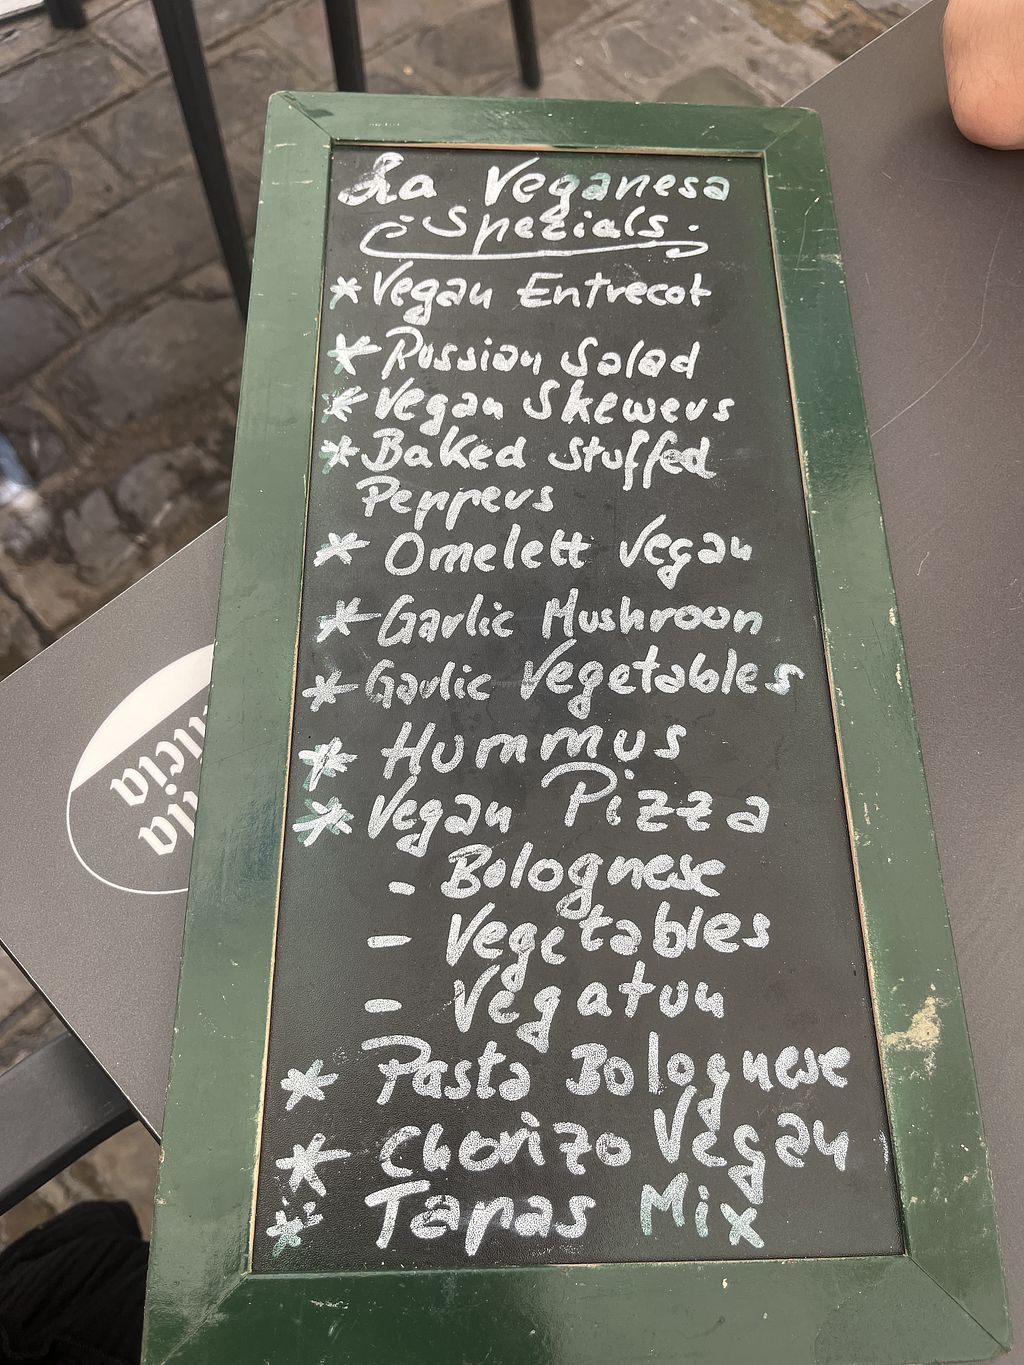 La Veganesa
- Spezials -
* Vegan Entrecot
* Russian Salad
* Vegan Skewers
* Baked Stuffed
Peppers
* Omelett Vegan
* Garlic Mushroon
* Garlic Vegetables
* Hummus
* Vegan Pizza
- Bolognese
- Vegetables
- Vegatun
* Pasta Bolognese
* Chorizo Vegan
* Tapas Mix